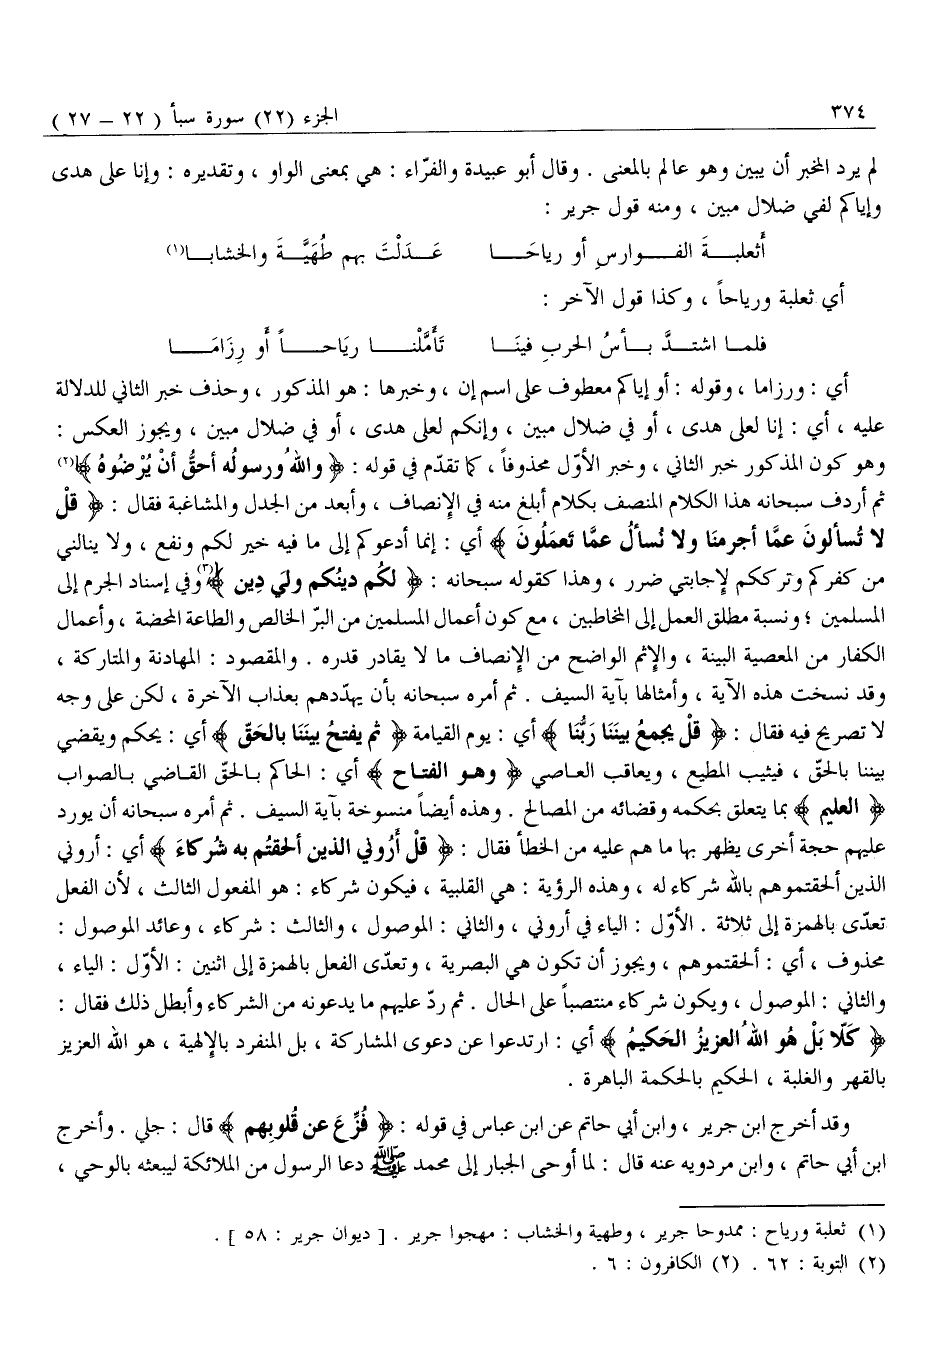 ٣٧٤
الجزء (٢٢) سورة سبأ ( ٢٢ – ٢٧ )
لم يرد المخبر أن يبين وهو عالم بالمعنى . وقال أبو عبيدة والفرّاء : هي بمعنى الواو ، وتقديره : وإنا على هدى
وإياكم لفي ضلال مبين ، ومنه قول جرير :
أَثعلبـــةَ الفـــوارسِ أو رياحَـــا عَـــدَلْتَ بهم طُهَيَّـــةَ والخشابـــا(١)
أي ثعلبة ورياحاً ، وكذا قول الآخر :
فلمـــا اشتـــدَّ بـــأسُ الحربِ فينَـــا تَأَمَّلْنـــا ريَاحـــاً أَو رِزَامَـــا
أي : ورزاما ، وقوله : أو إياكم معطوف على اسم إن ، وخبرها : هو المذكور ، وحذف خبر الثاني للدلالة
عليه ، أي : إنا لعلى هدى ، أو في ضلال مبين ، وإنكم لعلى هدى ، أو في ضلال مبين ، ويجوز العكس :
وهو كون المذكور خبر الثاني ، وخبر الأوّل محذوفاً ، كما تقدّم في قوله : ﴿ واللهُ ورسولُه أحقُّ أنْ يُرْضُوهُ ﴾(٢)
ثم أردف سبحانه هذا الكلام المنصف بكلام أبلغ منه في الإِنصاف ، وأبعد من الجدل والمشاغبة فقال : ﴿ قلْ
لا تُسألونَ عمَّا أجرمنَا ولا نُسألُ عمَّا تَعمَلُونَ ﴾ أي : إنما أدعوكم إلى ما فيه خير لكم ونفع ، ولا ينالني
من كفركم وترككم لإِجابتي ضرر ، وهذا كقوله سبحانه : ﴿ لكُم دينُكم وليَ دِين ﴾(٣) وفي إسناد الجرم إلى
المسلمين ؛ ونسبة مطلق العمل إلى المخاطبين ، مع كون أعمال المسلمين من البرّ الخالص والطاعة المحضة ، وأعمال
الكفار من المعصية البينة ، والإِثم الواضح من الإِنصاف ما لا يقادر قدره . والمقصود : المهادنة والمتاركة ،
وقد نسخت هذه الآية ، وأمثالها بآية السيف . ثم أمره سبحانه بأن يهدّدهم بعذاب الآخرة ، لكن على وجه
لا تصريح فيه فقال : ﴿ قلْ يجمعُ بينَنا رَبُّنَا ﴾ أي : يوم القيامة ﴿ ثم يفتحُ بينَنَا بالحَقّ ﴾ أي : يحكم ويقضي
بيننا بالحقّ ، فيثيب المطيع ، ويعاقب العـاصي ﴿ وهـو الفتـاح ﴾ أي : الحاكم بـالحقّ القـاضي بـالصواب
﴿ العليم ﴾ بما يتعلق بحكمه وقضائه من المصالح . وهذه أيضاً منسوخة بآية السيف . ثم أمره سبحانه أن يورد
عليهم حجة أخرى يظهر بها ما هم عليه من الخطأ فقال : ﴿ قلْ أَرُوني الذين ألحقتُم به شُركَاءَ ﴾ أي : أروني
الذين ألحقتموهم بالله شركاء له ، وهذه الرؤية : هي القلبية ، فيكون شركاء : هو المفعول الثالث ، لأن الفعل
تعدّى بالهمزة إلى ثلاثة . الأوّل : الياء في أروني ، والثاني : الموصول ، والثالث : شركاء ، وعائد الموصول :
محذوف ، أي : ألحقتموهم ، ويجوز أن تكون هي البصرية ، وتعدّى الفعل بالهمزة إلى اثنين : الأوّل : الياء ،
والثاني : الموصول ، ويكون شركاء منتصباً على الحال . ثم ردّ عليهم ما يدعونه من الشركاء وأبطل ذلك فقال :
﴿ كَلَّا بَلْ هُو اللهُ العزيزُ الحَكيمُ ﴾ أي : ارتدعوا عن دعوى المشاركة ، بل المنفرد بالإِلهية ، هو الله العزيز
بالقهر والغلبة ، الحكيم بالحكمة الباهرة .
وقد أخرج ابن جرير ، وابن أبي حاتم عن ابن عباس في قوله : ﴿ فُزِّعَ عن قُلوبِهم ﴾ قال : جلي . وأخرج
ابن أبي حاتم ، وابن مردويه عنه قال : لما أوحى الجبار إلى محمد ﷺ دعا الرسول من الملائكة ليبعثه بالوحي ،
(١) ثعلبة ورياح : ممدوحا جرير ، وطهية والخشاب : مهجوا جرير . [ ديوان جرير : ٥٨ ] .
(٢) التوبة : ٦٢ . (٢) الكافرون : ٦ .